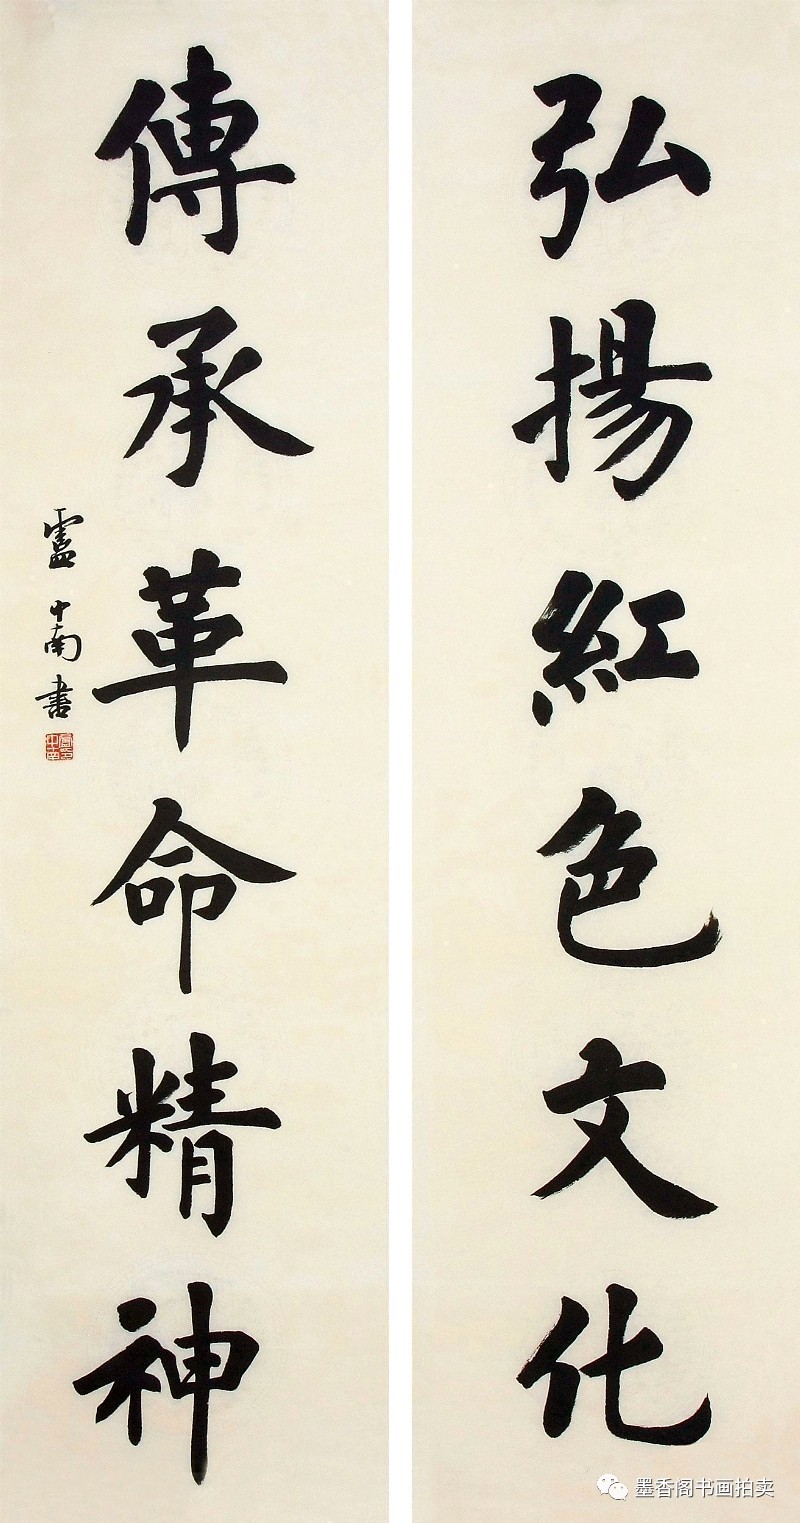 弘揚紅色文化
傳承革命精神
盧中南書
墨香阁书画拍卖